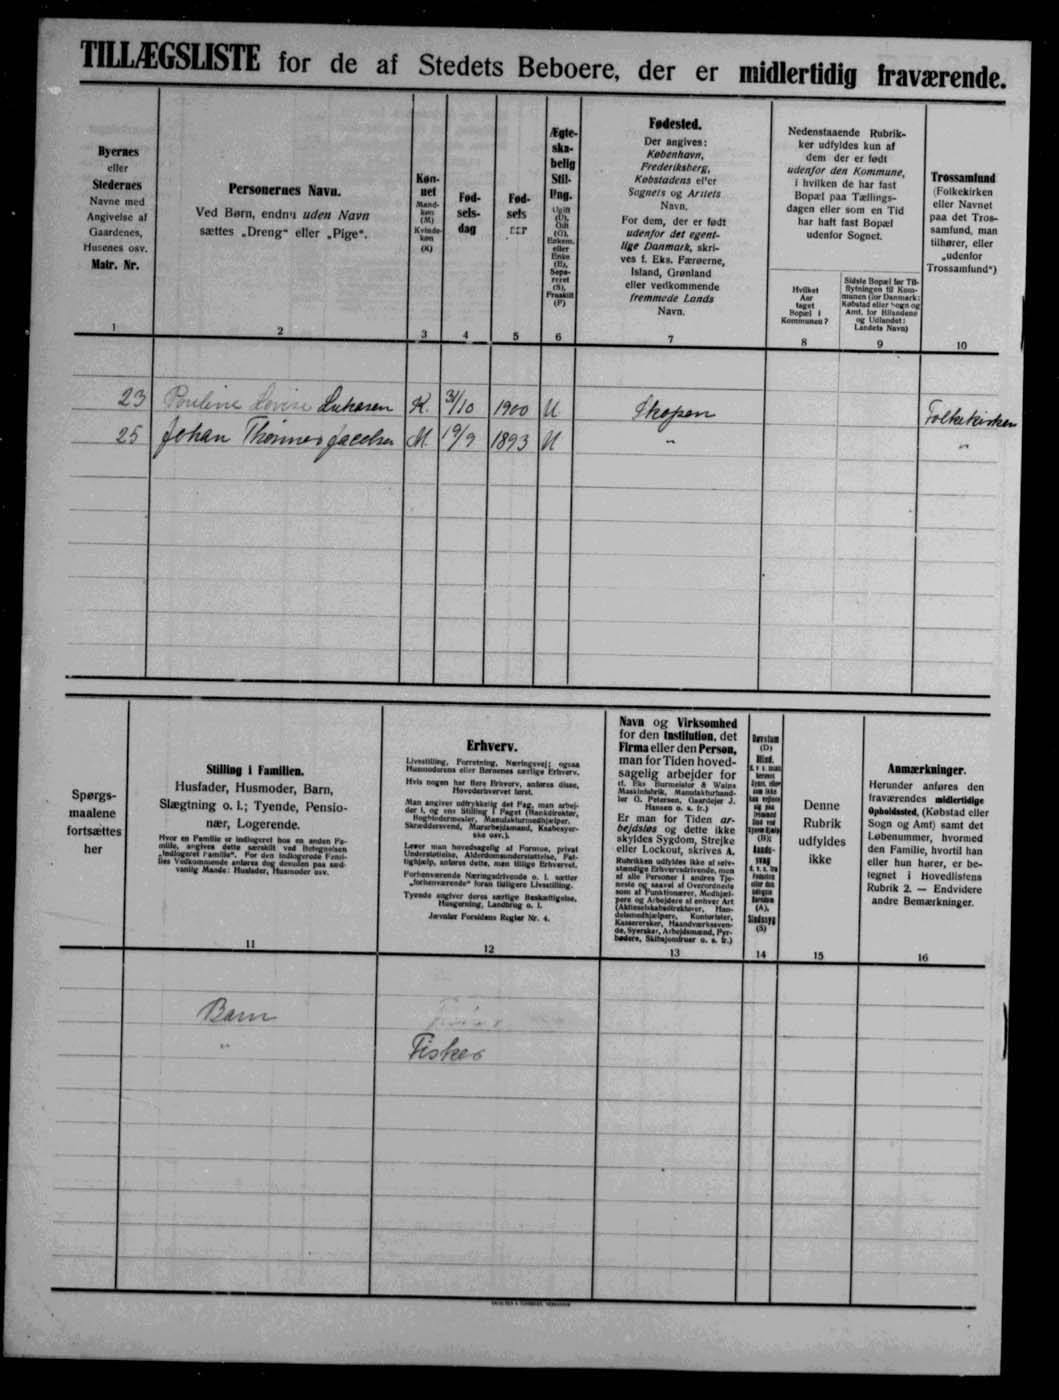 TILLÆGSLISTE for de af Stedets Beboere, der er midlertidig fraværende.
Byernes
eller
Stedernes
Navne med
Angivelse af
Gaardenes,
Husenes osv.
Matr. Nr.
1
Personernes Navn.
Ved Børn, endnu uden Navn
sættes „Dreng“ eller „Pige“.
2
Køn-
net
Mand-
køn
(M)
Kvinde-
køn
(K)
3
Fød-
sels-
dag
4
Fød-
sels
5
Ægte-
ska-
belig
Stil-
ling.
Ugift
(U),
Gift
(G),
Enkem.
eller
Enke
(E),
Sepa-
reret
(S),
Fraskilt
(F)
6
Fødested.
Der angives:
København,
Frederiksberg,
Købstadens eller
Sognets og Amtets
Navn.
For dem, der er født
udenfor det egent-
lige Danmark, skri-
ves f. Eks. Færøerne,
Island, Grønland
eller vedkommende
fremmede Lands
Navn.
7
Nedenstaaende Rubrik-
ker udfyldes kun af
dem der er født
udenfor den Kommune,
i hvilken de har fast
Bopæl paa Tællings-
dagen eller som en Tid
har haft fast Bopæl
udenfor Sognet.
Hvilket
Aar
taget
Bopæl i
Kommunen?
8
Sidste Bopæl før Til-
flytningen til Kom-
munen (for Danmark:
Købstad eller Sogn og
Amt, for Bilandene
og Udlandet:
Landets Navn)
9
Trossamfund
(Folkekirken
eller Navnet
paa det Tros-
samfund, man
tilhører, eller
„udenfor
Trossamfund“)
10
23 Pouline Lovise Lukasen K. 31/10 1900 U Skopen Folkekirken
25 Johan Thomas Jacobsen M. 19/9 1893 U " "
Spørgs-
maalene
fortsættes
her
Stilling i Familien.
Husfader, Husmoder, Barn,
Slægtning o. l.; Tyende, Pensio-
nær, Logerende.
Hvor en Familie er indlogeret hos en anden Fa-
milie, angives dette særskilt ved Betegnelsen
„Indlogeret Familie“. For den indlogerede Fami-
lies Vedkommende anføres dog desuden paa sæd-
vanlig Maade: Husfader, Husmoder osv.
11
Erhverv.
Livsstilling, Forretning, Næringsvej; ogsaa
Husmoderens eller Børnenes særlige Erhverv.
Hvis nogen har flere Erhverv, anføres disse,
Hovederhvervet først.
Man angiver udtrykkelig det Fag, man arbej-
der i, og sin Stilling i Faget (Bankdirektør,
Bogbindermester, Manufakturmedhjælper,
Skræddersvend, Murarbejdsmand, Kaabesyer-
ske osv.).
Lever man hovedsagelig af Formue, privat
Understøttelse, Alderdomsunderstøttelse, Fat-
tighjælp, anføres dette, men tillige Erhvervet.
Forhenværende Næringsdrivende o. l. sætter
„forhenværende“ foran tidligere Livsstilling.
Tyende angiver deres særlige Beskæftigelse,
Husgerning, Landbrug o. l.
Jævnfør Forsidens Regler Nr. 4.
12
Navn og Virksomhed
for den Institution, det
Firma eller den Person,
man for Tiden hoved-
sagelig arbejder for
(f. Eks Burmeister & Wains
Maskinfabrik, Manufakturhand-
ler G. Petersen, Gaardejer J.
Hansen o. s. fr.)
Er man for Tiden ar-
bejdsløs og dette ikke
skyldes Sygdom, Strejke
eller Lockout, skrives A.
Rubrikken udfyldes ikke af selv-
stændige Erhvervsdrivende, men
af alle Personer i andres Tje-
neste og saavel af Overordnede
som af Funktionærer, Medhjæl-
pere og Arbejdere af enhver Art
(Aktieselskabsdirektører, Han-
delsmedhjælpere, Kontorister,
Kassererskær, Haandværkssven-
de, Syersker, Arbejdsmænd, Fyr-
bødere, Skibsjomfruer o. s. fr.)
13
Døvstum
(D)
Blind,
(B);
Aands-
svag
(A),
Sindssyg
(S)
14
Denne
Rubrik
udfyldes
ikke
15
Anmærkninger.
Herunder anføres den
fraværendes midlertidige
Opholdssted, (Købstad eller
Sogn og Amt) samt det
Løbenummer, hvormed
den Familie, hvortil han
eller hun hører, er be-
tegnet i Hovedlistens
Rubrik 2. — Endvidere
andre Bemærkninger.
16
Barn
" Fisker